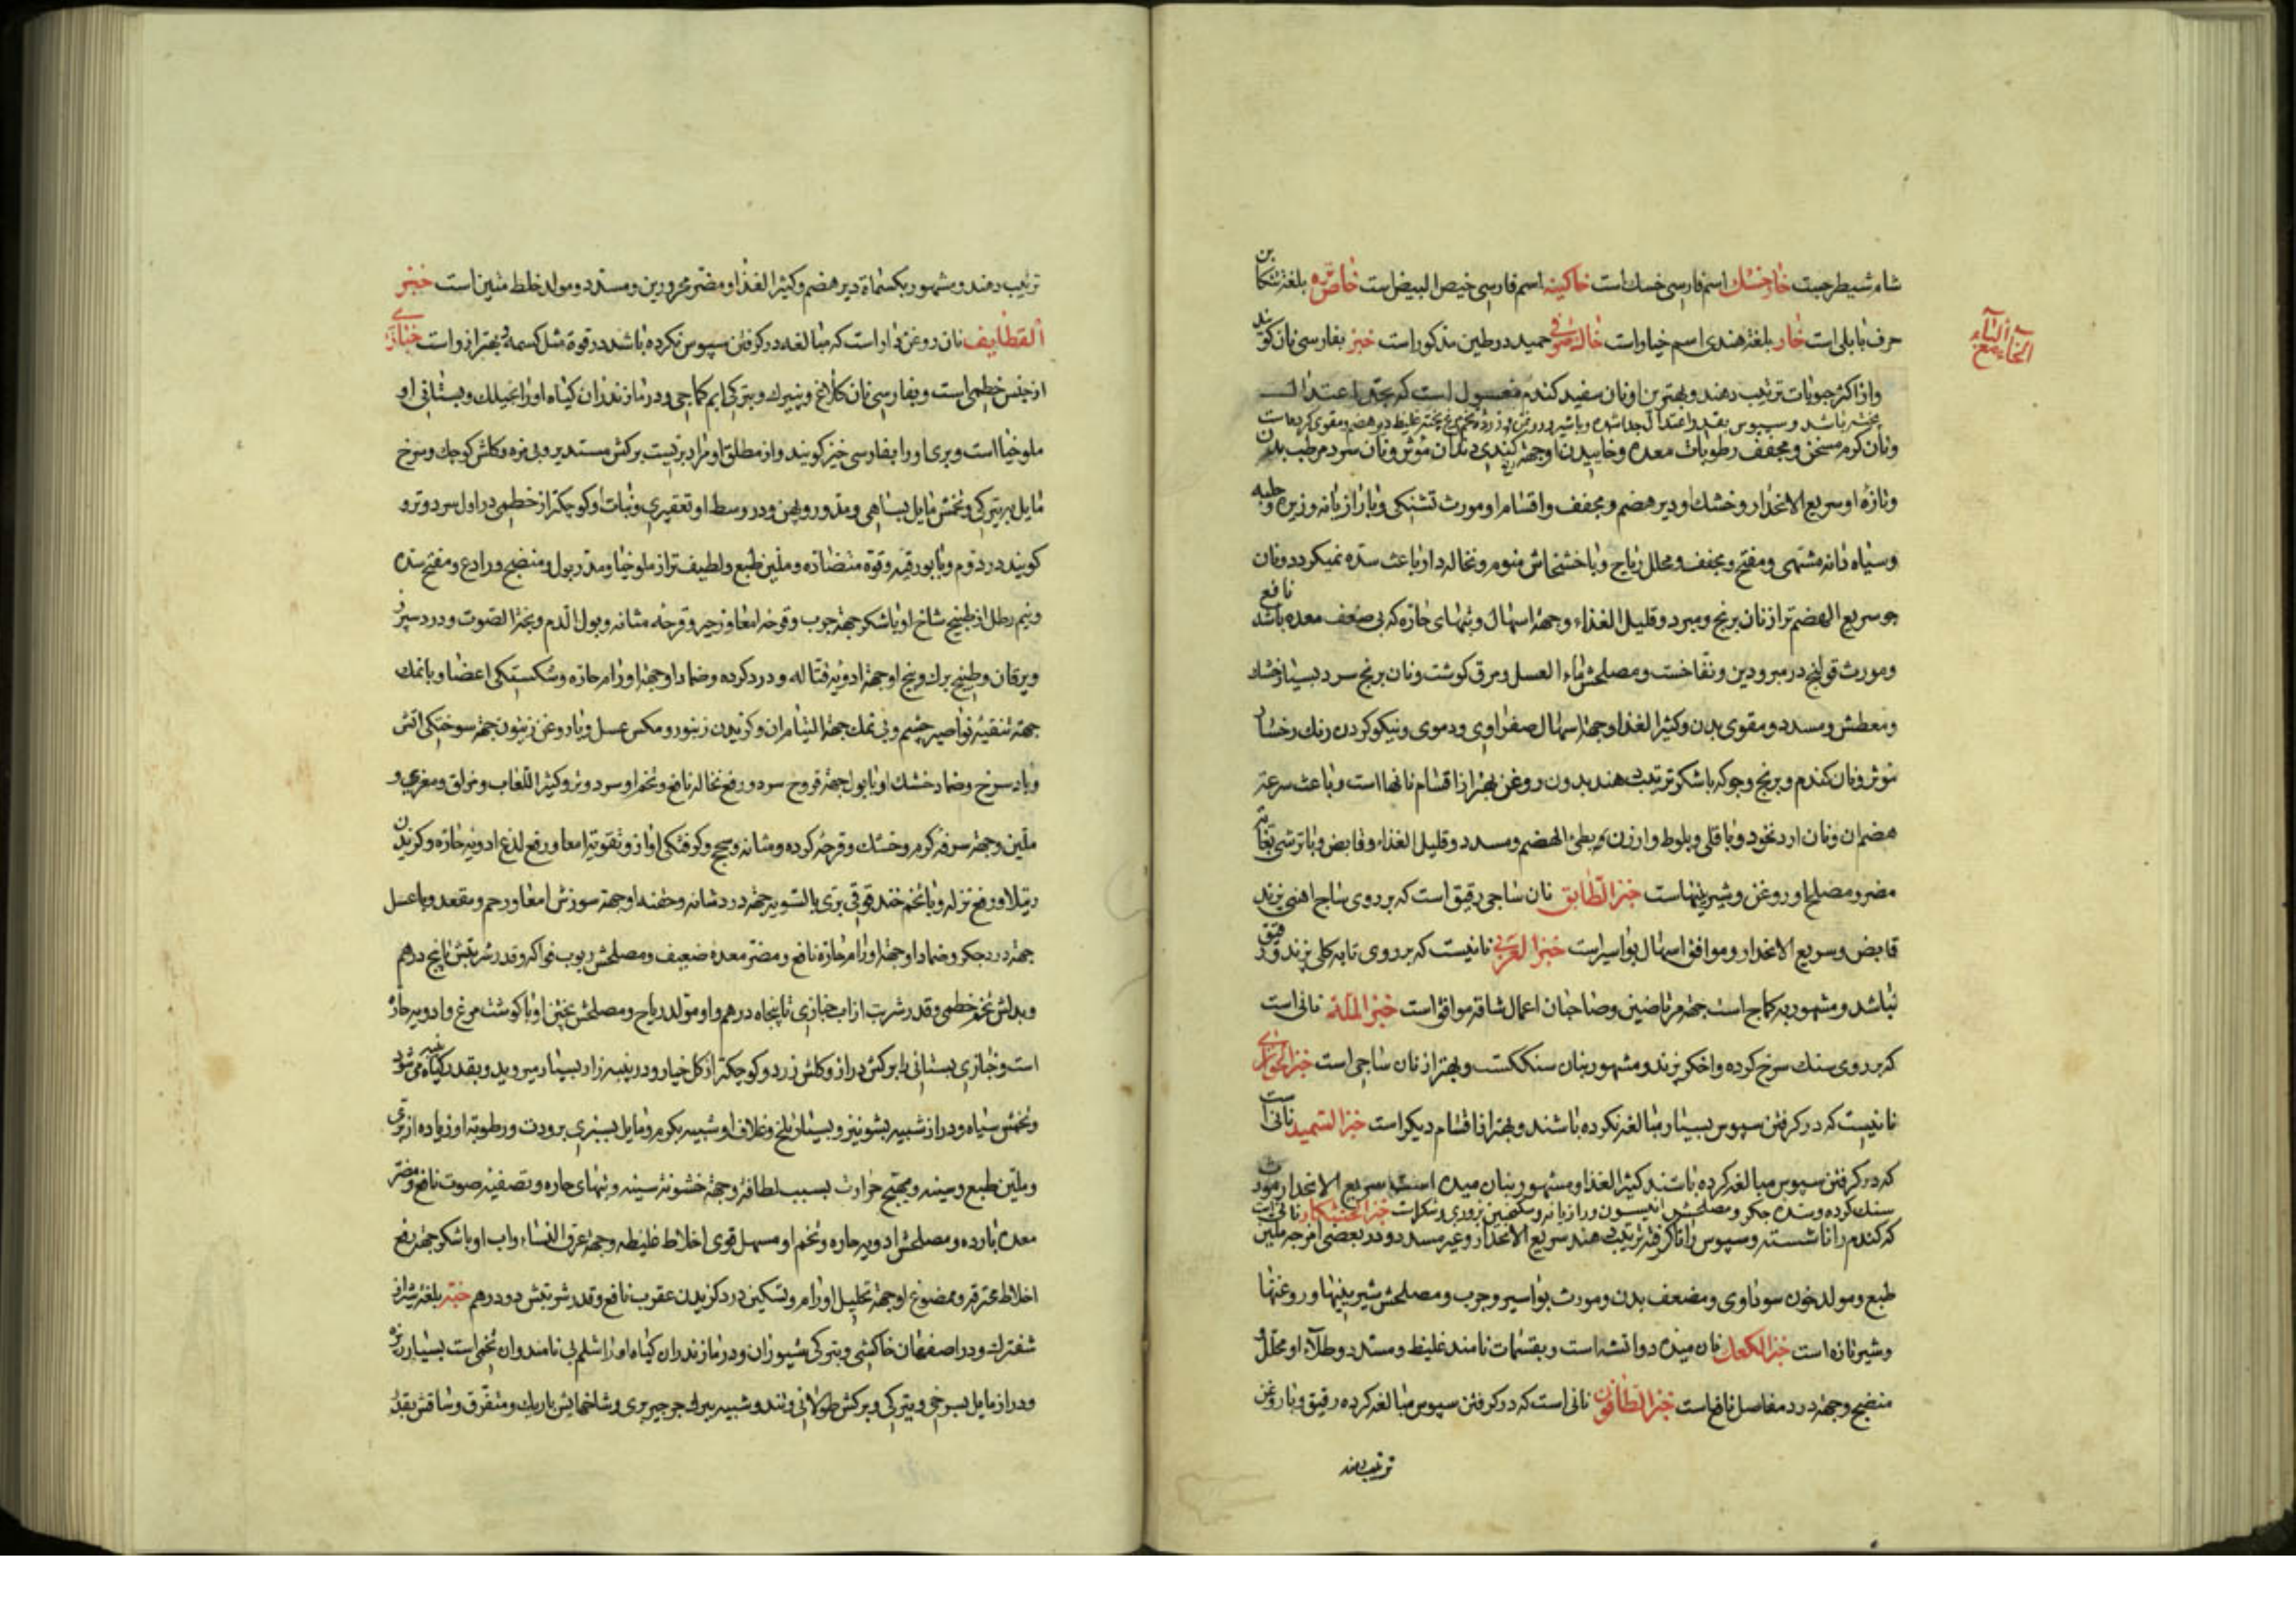 شامر شیطرجست خارخسک اسم فارسی خسک است خاکینه اسم فارسی خیص البیض است خاصه بلغة تنکابن
حرف بابلی است خار بلغة هندی اسم خیار است خاک صوفی حمید در طین مذکور است خبز بفارسی نان کویند
الخاء مع الباء
واز اکثر حبوبات ترتیب دهند و بهترین او نان سفید کندم مغسول است که بحد اعتدال
پخته باشد و سپوس بقدر اعتدال جدا شده و با شیر و روغن و زرده تخم مرغ پخته غلیظ دیر هضم و مقوی کرده است
ونان کرم مسخن و مجفف رطوبات معده وخاییدن او جهة کندی دندان مؤثر و نان سرد مرطب بدن
وتازه او سریع الانحدار وخشک او دیر هضم ومجفف واقسام او مورث تشنکی وبا رازیانه وزیره وحلبه
وسیاه دانه مشتهی ومفتح ومجفف ومحلل ریاح وبا خشخاش منوم ونخاله دار باعث سده نمیکردد ونان
جو سریع الهضم تر از نان برنج ومبرد وقلیل الغذاء وجهة اسهال وتبهای حاره که بی ضعف معده باشد نافع
ومورث قولنج در مبرودین ونفاخست ومصلحش ماء العسل ومرق کوشت ونان برنج سرد بسیار خشک
ومعطش ومسدد ومقوی بدن وکثیر الغذا وجهة اسهال صفراوی ودموی ونیکو کردن رنک رخسار
مؤثر ونان کندم وبرنج وجو که با شکر ترتیب دهند بدون روغن بهتر از اقسام نانها است وباعث سرعة
هضم ان ونان ارد نخود وباقلی وبلوط وارزن بطی الهضم ومسدد وقلیل الغذاء وقابض وبا ترشی بغایة
مضر ومصلح او روغن وشیرینیهاست خبز الطابق نان ساجی رقیق است که بر روی ساج اهنی پزند
قابض وسریع الانحدار وموافق اسهال بواسیر است خبز الفرنی نانیست که بر روی تابه کلی پزند ورقیق
نباشد ومشهور به کماج است جهة مرتاضین وصاحبان اعمال شاقه موافق است خبز الملة نانی است
که بر روی سنک سرخ کرده واخکر پزند ومشهور بنان سنککست وبهتر از نان ساجی است خبز الحواری
نانیست که در کرفتن سپوس بسیار مبالغه نکرده باشند وبهتر از اقسام دیکر است خبز السمید نانی است
که در کرفتن سپوس مبالغه کرده باشند کثیر الغذا ومشهور بنان میده است سریع الانحدار مورث
سنک کرده وسده جکر ومصلحش انیسون ورازیانه وسکنجبین بزوری وشکر است خبز الخشکار نانی است
که کندم را ناشسته وسپوس را ناکرفته ترتیب دهند سریع الانحدار وغیر مسدد ودر بعضی امزجه ملین
طبع ومولد خون سوداوی ومضعف بدن ومورث بواسیر وجرب ومصلحش شیرینیها وروغنها
وشیر تازه است خبز الکعک نان میده دو اتشه است وبقسمات نامند غلیظ ومسدد وطلاء او محلل و
منضج وجهة درد مفاصل نافع است خبز الطافون نانی است که در کرفتن سپوس مبالغه کرده رقیق وبا روغن
ترتیب دهند
ترتیب دهند ومشهور بکسماة دیر هضم وکثیر الغذا ومضر محرورین ومسدد ومولد خلط متین است خبز
القطایف نان روغن دار است که مبالغه در کرفتن سپوس نکرده باشد در قوة مثل کسمه وبهتر از او است خبازی
از جنس خطمی است وبفارسی نان کلاغ وپنیرک وبترکی ایم کماجی ودر مازندران کیاه او را انجیلک وبستانی او
ملوخیا است وبری او را بفارسی خیز کویند واز مطلق او مراد بریست برکش مستدیر وبی مزه وکلش کوچک وسرخ
مایل بتیرکی وتخمش مایل بسیاهی ومدور وپهن ودر وسط او تقعیری ونبات او کوچکتر از خطمی در اول سرد وتر و
کویند در دوم وبا بورقیه وقوة متضاده وملین طبع ولطیف تر از ملوخیا ومدر بول ومنضج ورادع ومفتح سده
ونیم رطل از طبیخ شاخ او با شکر جهة جرب وقرحه امعا وزحیر وقرحه مثانه وبول الدم وبحة الصوت ودرد سپرز
ویرقان وطبیخ برک وبیخ او جهة ادویه قتاله ودرد کرده وضماد او جهة اورام حاره وشکستکی اعضا وبا نمک
جهة تنقیه نواصیر چشم وبی نمک جهة التیام ان وکزیدن زنبور ومکس عسل وبا روغن زیتون جهة سوختکی اتش
وباد سرخ وضماد خشک او با بول جهة قروح سر ورفع نخاله نافع وتخم او سرد وتر وکثیر اللعاب ومزلق ومغری و
ملین وجهة سرفه کرم وخشک وقرحه کرده ومثانه وسحج وکرفتکی اواز وتقویة امعا ورفع لذع ادویه حاره وکزیدن
رتیلا ورفع نزله وبا تخم حندقوقی بری بالسویه جهة درد مثانه وحقنه او جهة سوزش امعا ورحم ومقعد وبا عسل
جهة درد جکر وضماد او جهة اورام حاره نافع ومضر معده ضعیف ومصلحش ربوب فواکه وقدر شربتش تا پنج درهم
وبدلش تخم خطمی وقدر شربت از اب خبازی تا پنجاه درهم واو مولد ریاح ومصلحش پختن او با کوشت مرغ وادویه حاره
است وخبازی بستانی را برکش دراز وکلش زرد وکوچکتر از کل خیار ودر پنبه زار بسیار میروید وبقدر کیاه پنبه می شود
وتخمش سیاه ودراز شبیه بشونیز وبسیار تلخ وغلاف او شبیه بکرم ومایل بسبزی برودت ورطوبة او زیاده از بری
وملین طبع وسینه ومهیج حرارت بسبب لطافة وجهة خشونة سینه وتبهای حاره وتصفیه صوت نافع ومضر
معده بارده ومصلحش ادویه حاره وتخم او مسهل قوی اخلاط غلیظه وجهة عرق النساء واب او با شکر جهة رفع
اخلاط محترقه وممضوغ او جهة تحلیل اورام وتسکین درد کزیدن عقرب نافع وقدر شربتش دو درهم خبه بلغة شیراز
شفترک ودر اصفهان خاکشی وبترکی شیوران ودر مازندران کیاه او را شلم بی نامند وان تخمی است بسیار ریزه
ودراز مایل بسرخی وتیرکی وبرکش طولانی وتند وشبیه ببرک جرجیر بری وشاخهایش باریک ومتفرق وساقش بقدر